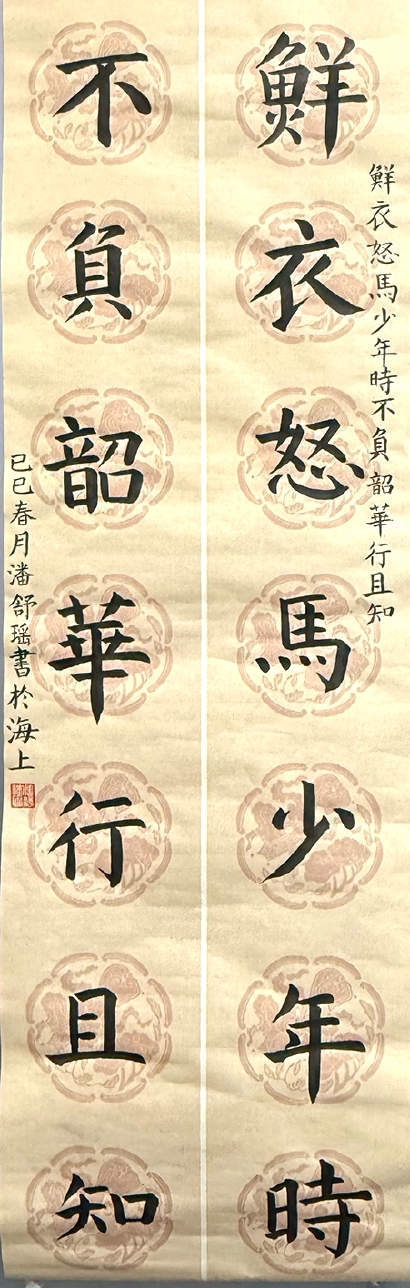 鮮衣怒馬少年時不負韶華行且知
鮮衣怒馬少年時
不負韶華行且知
已巳春月潘舒瑶書於海上